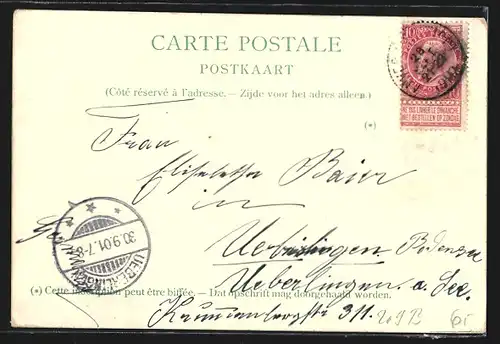 CARTE POSTALE
POSTKAART
(Côté réservé à l'adresse. — Zijde voor het adres alleen.)
(*)
NE PAS LIVRER LE DIMANCHE
NIET BESTELLEN OP ZONDAG
Frau
Elisabetha Baier
in
Bodensee
Ueberlingen a. See.
30.9.01.7-8
(*) Cette indication peut être biffée. — Dat opschrift mag doorgehaald worden.
311.